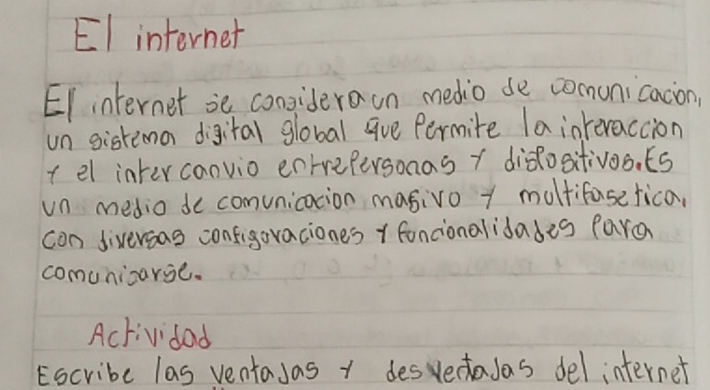 El internet
El internet se considera un medio de comunicacion,
un sistema digital global que Permite la interaccion
y el intercanvio entrePersonas y dispositivos. Es
un medio de comunicacion masivo y multifasetica,
con diversas configuraciones y funcionalidades Para
comunicarse.
Actividad
Escribe las ventajas y desventajas del internet